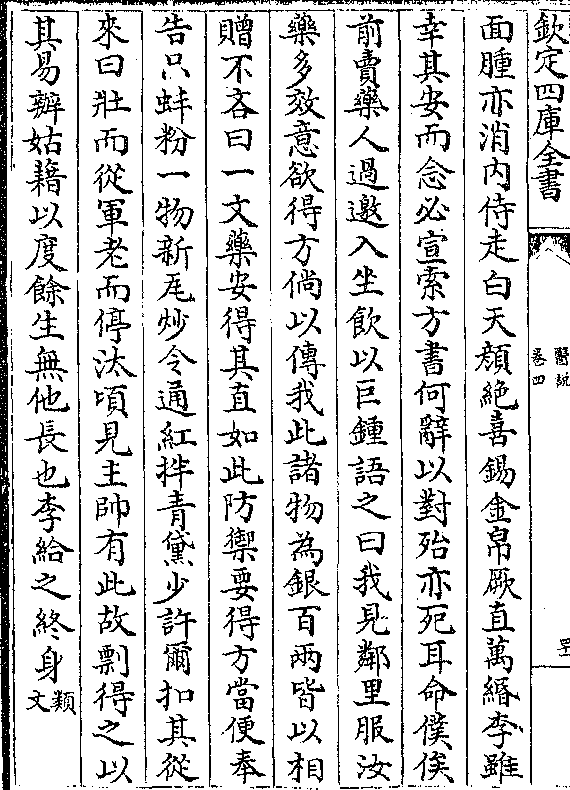 欽定四庫全書
醫說
卷四
面腫亦消内侍走白天顔絶喜錫金帛厥直萬緡李雖
幸其安而念必宣索方書何辭以對殆亦死耳命僕俟
前賣藥人過邀入坐飲以巨鍾語之曰我見鄰里服汝
藥多效意欲得方倘以傳我此諸物為銀百兩皆以相
贈不吝曰一文藥安得其直如此防禦要得方當便奉
告只蚌粉一物新瓦炒令通紅拌青黛少許爾扣其從
來曰壯而從軍老而停汰頃見主帥有此故剽得之以
其易辨姑藉以度餘生無他長也李給之終身類
文